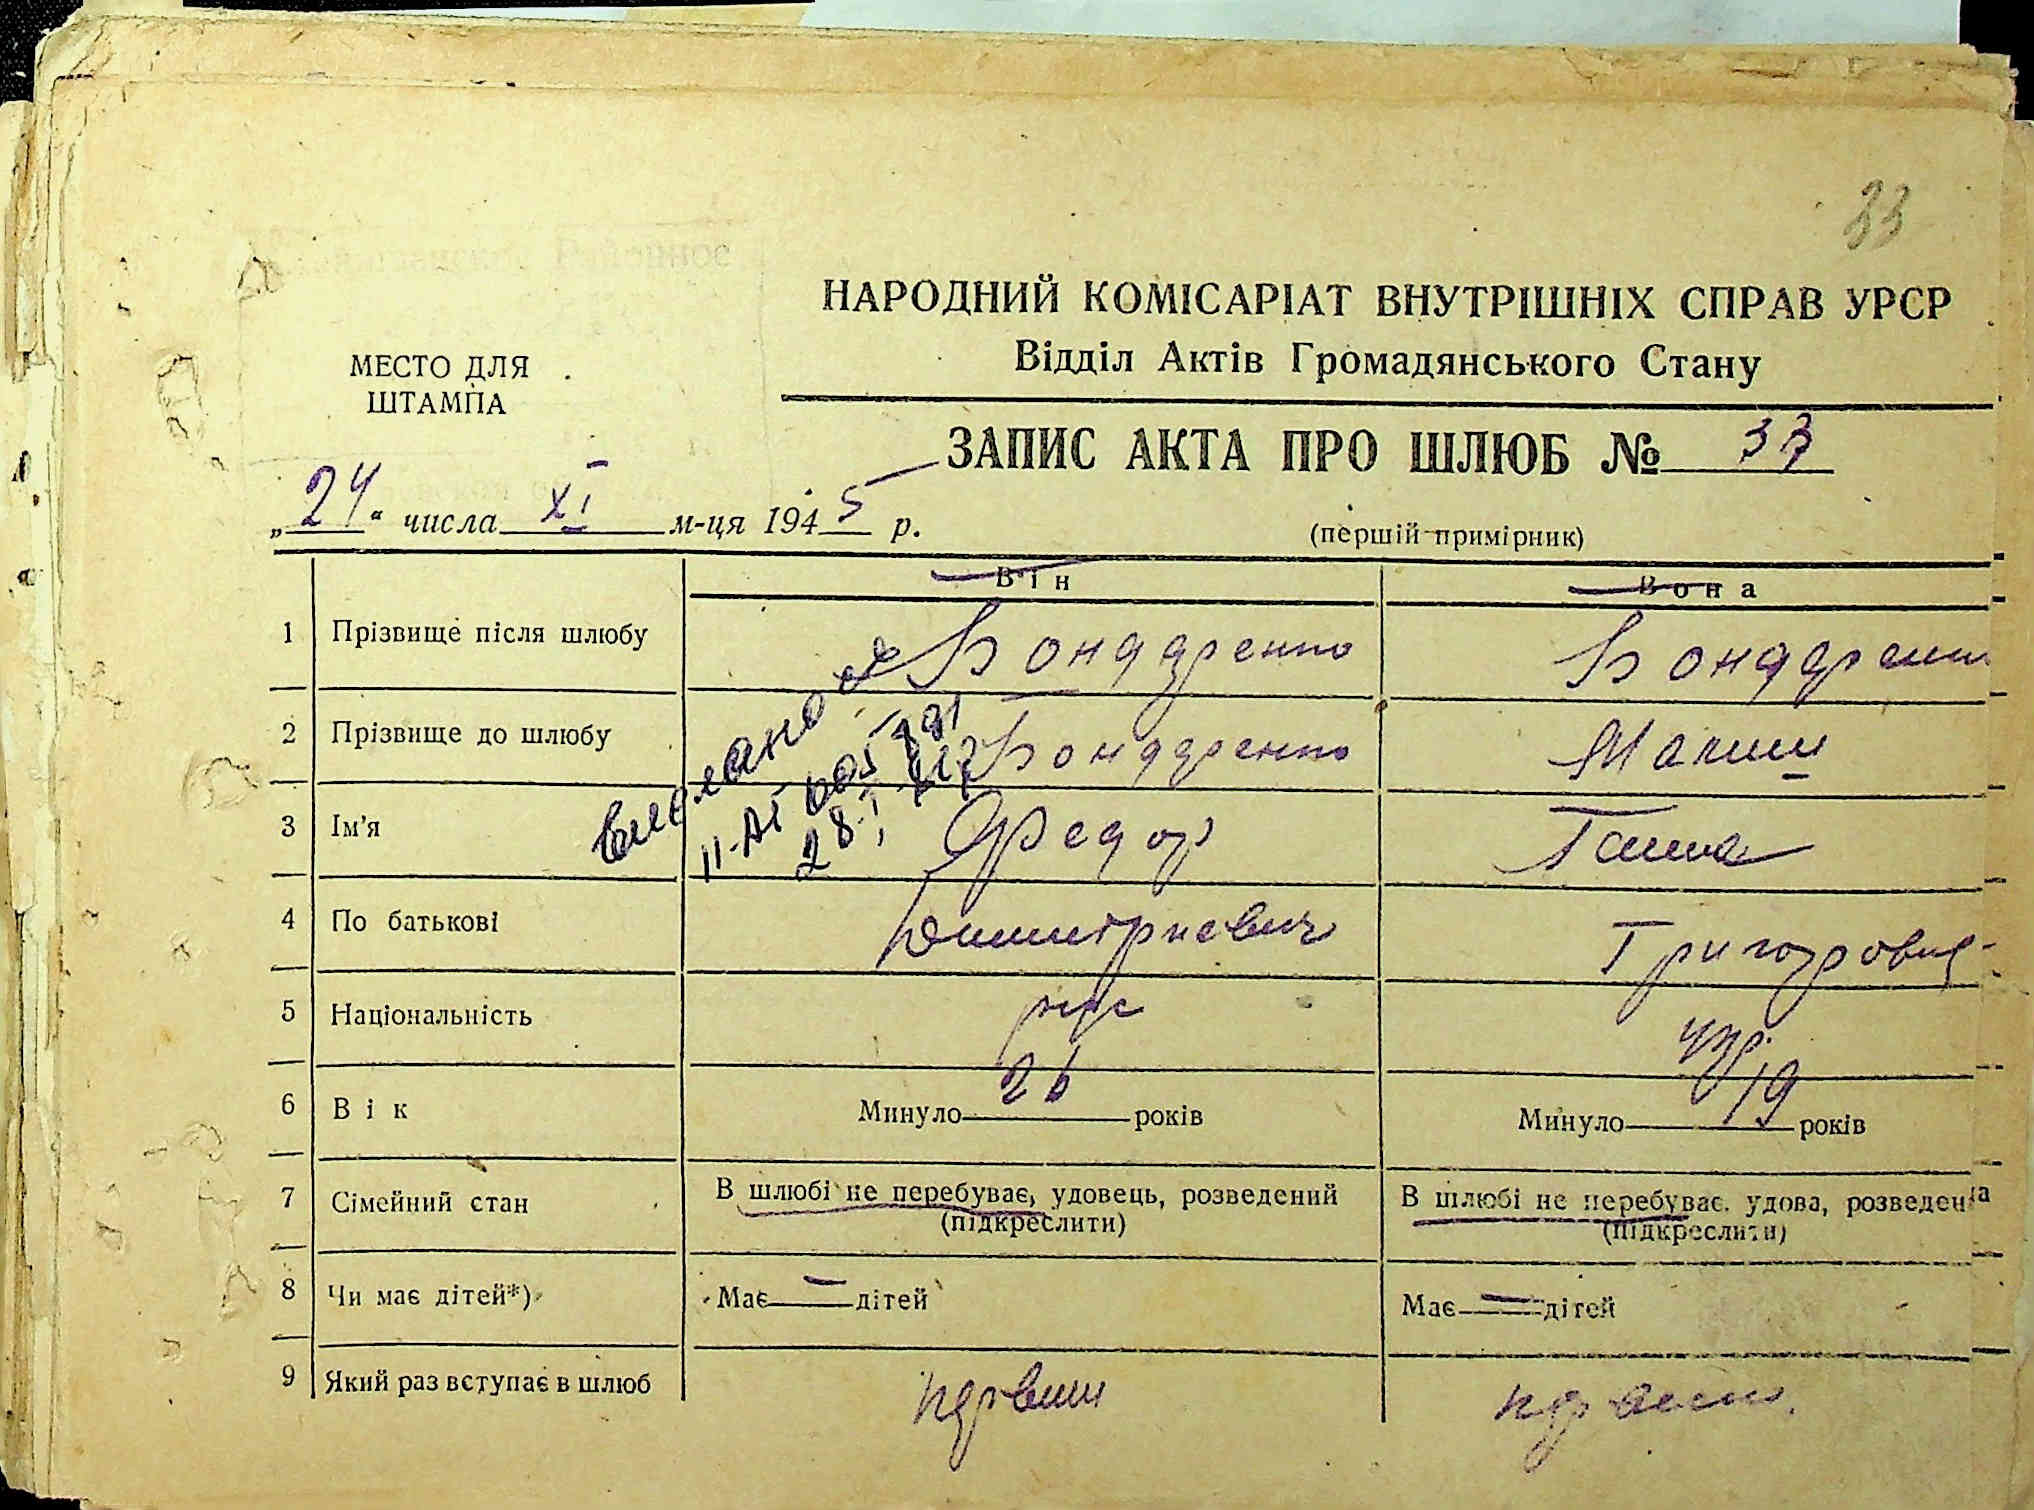 33
НАРОДНИЙ КОМІСАРІАТ ВНУТРІШНІХ СПРАВ УРСР
Відділ Актів Громадянського Стану
МЕСТО ДЛЯ
ШТАМПА
ЗАПИС АКТА ПРО ШЛЮБ № 33
„24“ числа XI м-ця 1945 р.
(першій примірник)
Він Вона
1 Прізвище після шлюбу Бондаренко Бондаренк
2 Прізвище до шлюбу Бондаренко
3 Ім'я Федор Ганна
4 По батькові Димитриевич Григоровна
5 Національність рус укр.
6 Вік Минуло 26 років Минуло 19 років
7 Сімейний стан В шлюбі не перебуває, удовець, розведений В шлюбі не перебуває. удова, розведена
(підкреслити) (підкреслити)
8 Чи має дітей*) Має — дітей Має — дітей
9 Який раз вступає в шлюб первий